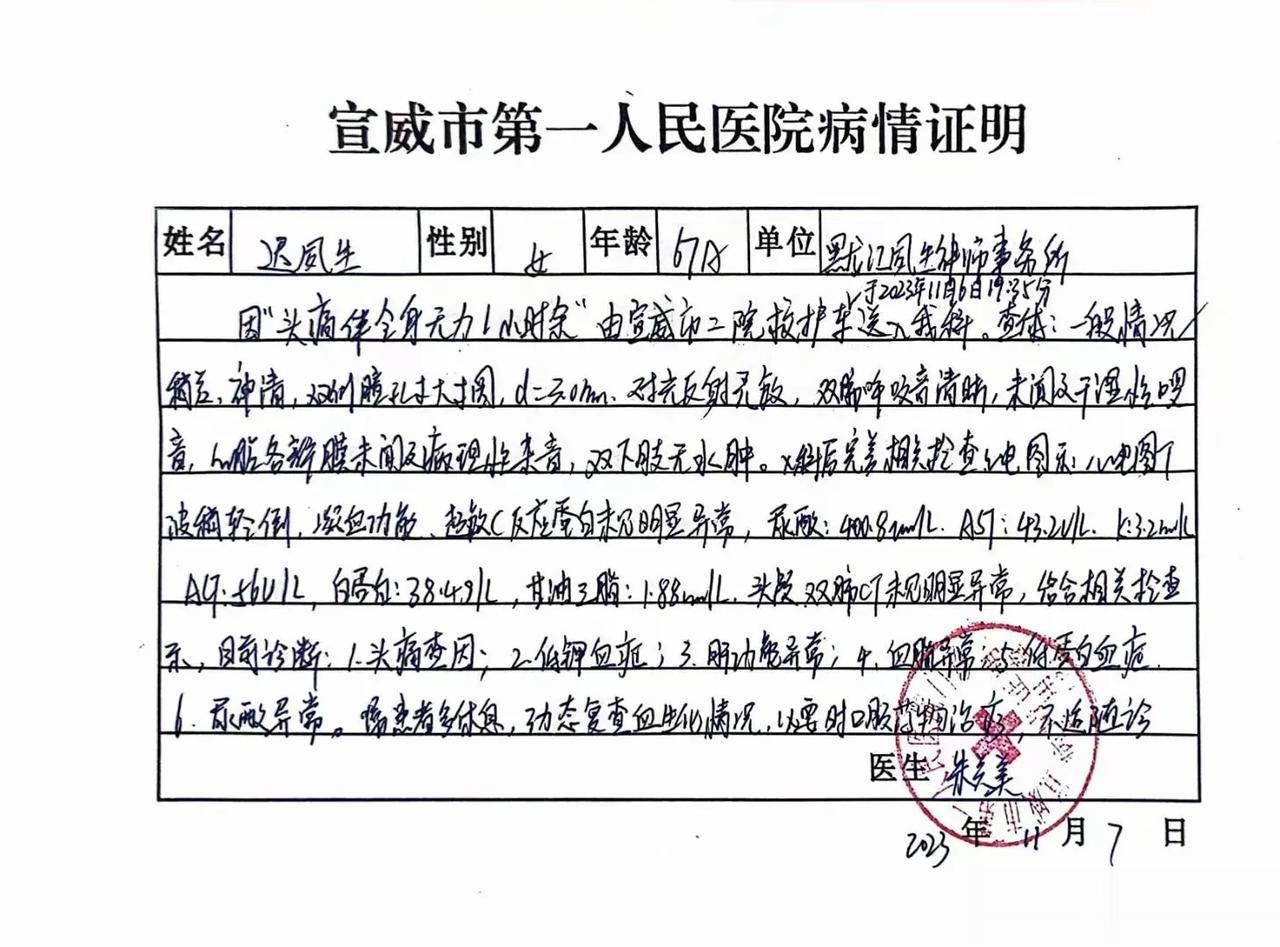 宣威市第一人民医院病情证明
姓名 迟夙生 性别 女 年龄 67岁 单位 黑龙江夙生律师事务所
于2023年11月6日19:35分
因“头痛伴全身无力1小时余”由宣威市二院救护车送入我科。查体:一般情况
稍差,神清,双侧瞳孔等大等圆,d=3.0mm.对光反射灵敏,双肺呼吸音清晰,未闻及干湿性啰
音,心脏各瓣膜未闻及病理性杂音,双下肢无水肿。入科后完善相关检查心电图示:心电图T
波稍 倒,凝血功能、超敏C反应蛋白未见明显异常,尿酸:400.8umol/L. AST:43.2U/L. K:3.2mmol/L
ALT:56U/L,白蛋白:38.4g/L,甘油三脂:1.88mmol/L.头颅双肺CT未见明显异常,结合相关检查
示,目前诊断:1.头痛查因;2.低钾血症;3.肝功能异常;4.血脂异常;5.低蛋白血症.
6.尿酸异常。嘱患者多休息,动态复查血生化情况,必要时口服药物治疗,不适随诊
医生 朱美美
2023年11月7日